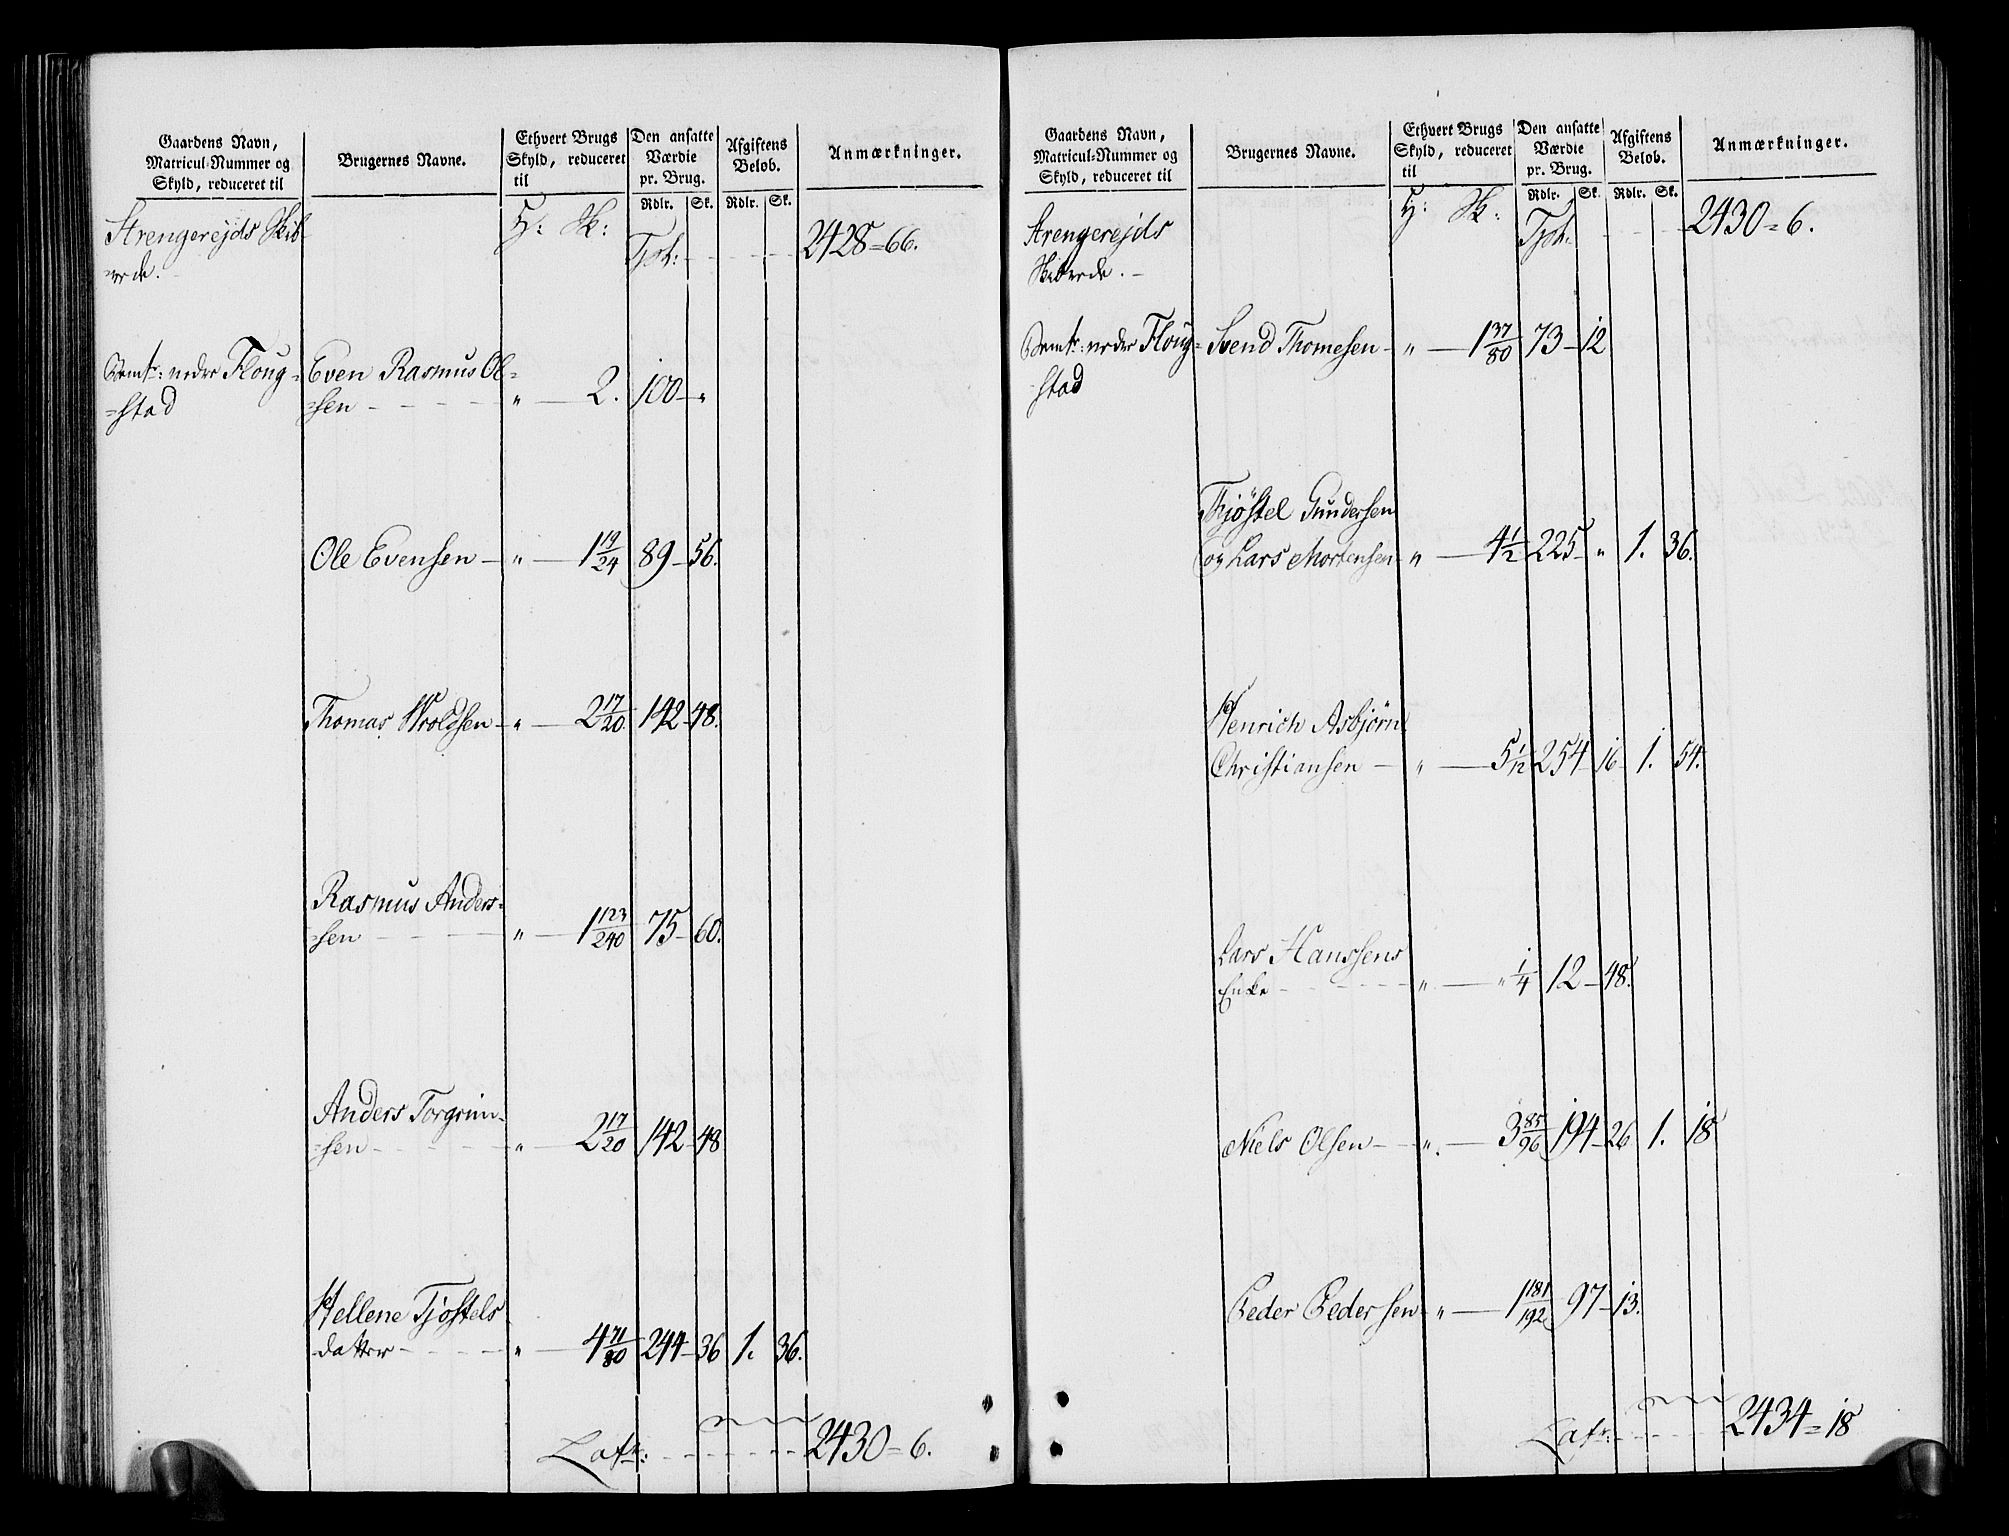 Gaardens Navn,
Matricul-Nummer og
Skyld, reduceret til
Brugernes Navne.
Ethvert Brugs
Skyld, reduceret
til
Den ansatte
Værdie
pr. Brug.
Rdlr. Sk.
Afgiftens
Beløb.
Rdlr. Sk.
Anmærkninger.
Strengerejds Skib-
=rede.
H: Sk:
Tpt: 2428=66.
Floug=
=stad
Even Rasmus Ol=
=sen " 2. 100 - "
Ole Evensen - " - 1 19/24 89 - 56.
Thomas Wroldsen - " - 2 17/20 142 - 48.
Rasmus Anders=
=sen " - 1 123/240 75 - 60.
Anders Torgrim-
=sen " - 2 17/20 142 - 48
Hellene Tjøstels
datter " - 4 71/80 244 - 36 1. 36.
Latr: 2430=6.
Gaardens Navn,
Matricul-Nummer og
Skyld, reduceret til
Brugernes Navne.
Ethvert Brugs
Skyld, reduceret
til
Den ansatte
Værdie
pr. Brug.
Rdlr. Sk.
Afgiftens
Beløb.
Rdlr. Sk.
Anmærkninger.
Strengerejds
Skibrede.
H: Sk:
Tpt: 2430=6.
Floug=
=stad
Svend Thomesen - " - 1 37/80 73 - 12
Thjøstel Gundersen
og Lars Mortensen - " - 4 1/2 225 - " 1. 36.
Henrich Asbjørn
Christiansen - " - 5 1/12 254 16 1. 54.
Lars Hanssens
Enke " - " 1/4 12 - 48.
Niels Olsen - " - 3 85/96 194 - 26 1. 18
Peder Pedersen - " - 1 181/192 97 - 13.
Latr: 2434=18